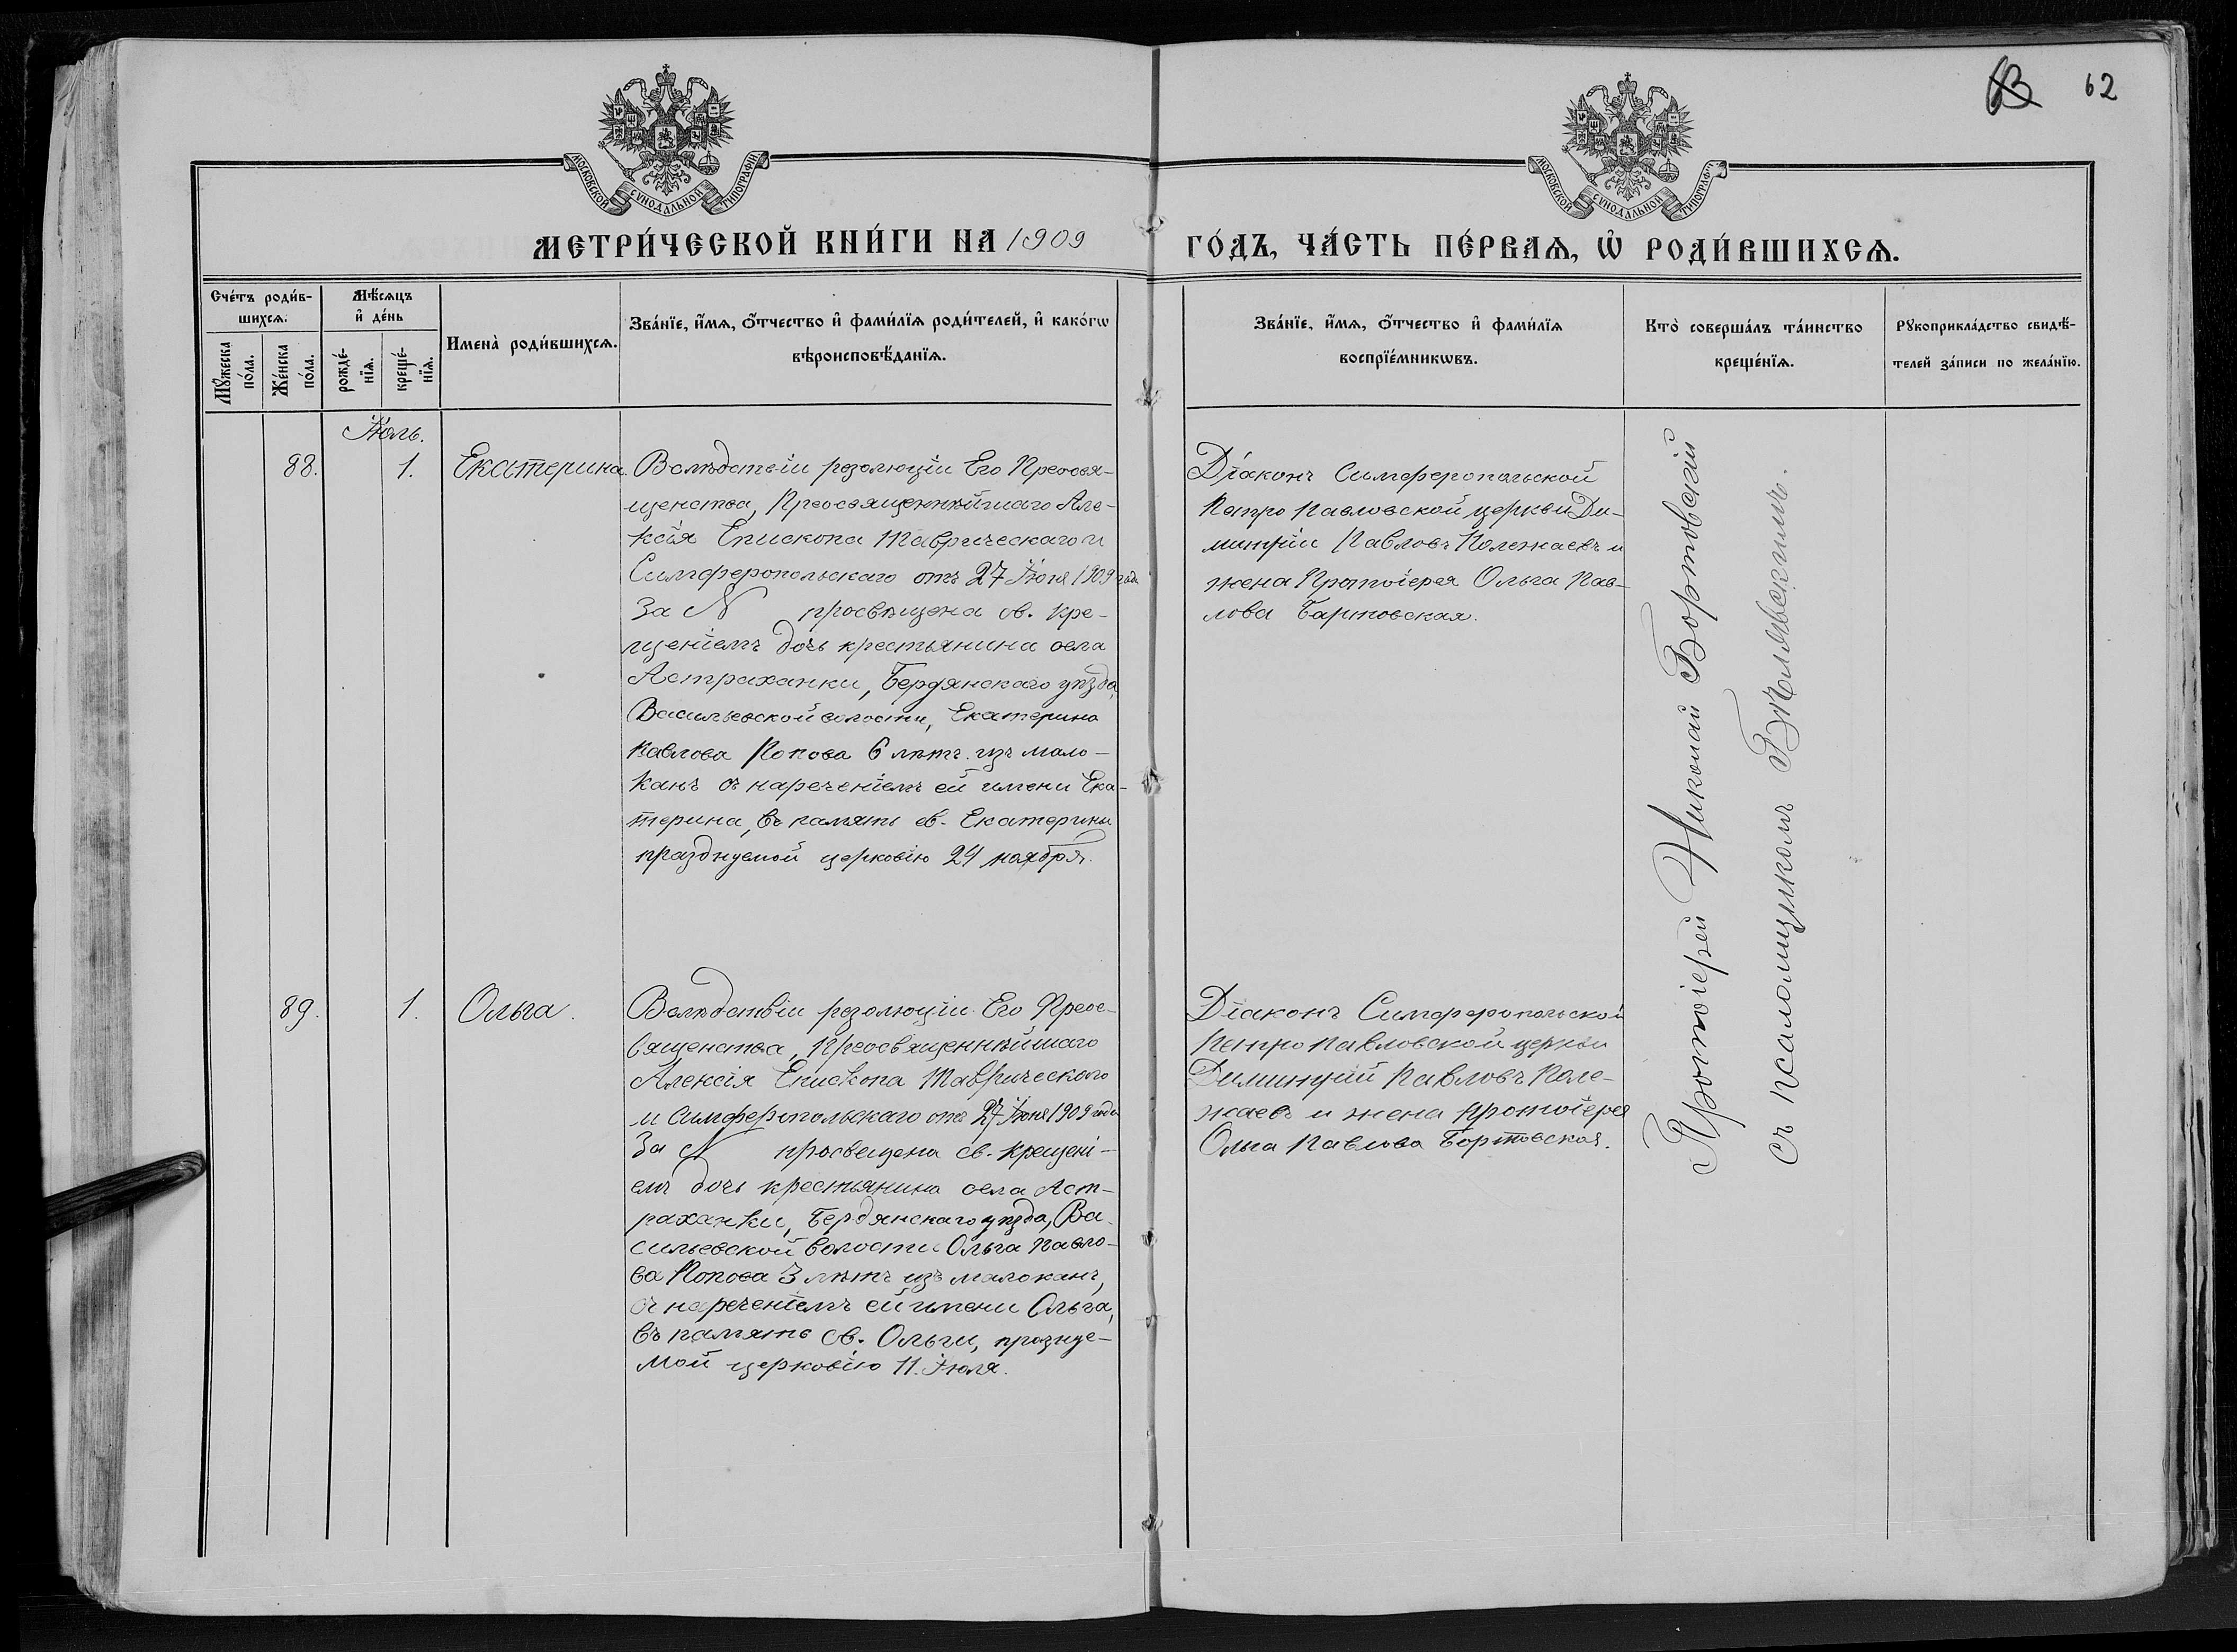 63 62
МОСКОВСКОЙ СѴНОДАЛЬНОЙ ТИПОГРАФІИ
МОСКОВСКОЙ СѴНОДАЛЬНОЙ ТИПОГРАФІИ
МЕТРИ́ЧЕСКОЙ КНИ́ГИ НА 1909
ГО́ДЪ, ЧА́СТЬ ПЕ́РВАѦ, Ѡ҆ РОДИ́ВШИХСѦ.
Сче́тъ роди́в-
шихсѧ.
Мꙋ́жеска
по́ла.
Же́нска
по́ла.
Мѣ́сѧцъ
и҆ де́нь
рожде́-
нїѧ.
креще́-
нїѧ.
Имена̀ роди́вшихсѧ.
Зва́нїе, и҆́мѧ, ѻ҆́тчество и҆ фами́лїѧ роди́телей, и҆ како́гѡ
вѣроисповѣ́данїѧ.
Зва́нїе, и҆́мѧ, ѻ҆́тчество и҆ фами́лїѧ
воспрїе́мникѡвъ.
Кто̀ соверша́лъ та́инство
креще́нїѧ.
Рꙋкоприкла́дство свидѣ́-
телей за́писи по жела́нїю.
Іюль.
88. 1. Екатерина.
Вслѣдствіи резолюціи Его Преосвя-
щенства, Преосвященнѣйшаго Але-
ксія Епископа Таврическаго и
Симферопольскаго отъ 27 Іюня 1909 года
За N просвѣщена св. кре-
щеніемъ дочь крестьянина села
Астраханки, Бердянскаго уѣзда,
Васильевской волости, Екатерина
Павлова Попова 6 лѣтъ. изъ мало-
канъ съ нареченіемъ ей имени Ека-
терина, въ память св. Екатерины
празднуемой церковію 24 ноября.
Діаконъ Симферопольской
Петро Павловской церкви Ди-
митрій Павловъ Полежаевъ и
жена Протоіерея Ольга Пав-
лова Бартовская.
89. 1. Ольга.
Вслѣдствіи резолюціи Его Преос-
вященства, Преосвященнѣйшаго
Алексія Епископа Таврическаго
и Симферопольскаго отъ 27 Іюня 1909 года
За N просвещена св. крещені-
емъ дочь крестьянина села Аст-
раханки, Бердянскаго уѣзда, Ва-
сильевской волости Ольга Павло-
ва Попова 3 лѣтъ изъ малоканъ,
съ нареченіемъ ей имени Ольга,
въ память св. Ольги, празнуе-
мой церковію 11. Іюля.
Діаконъ Симферопольской
Петро Павловской церкви
Димитрій Павловъ Поле-
жаевъ и жена протоіерея
Ольга Павлова Бортовская.
Протоіерей Николай Бортовскій
съ псаломщикомъ